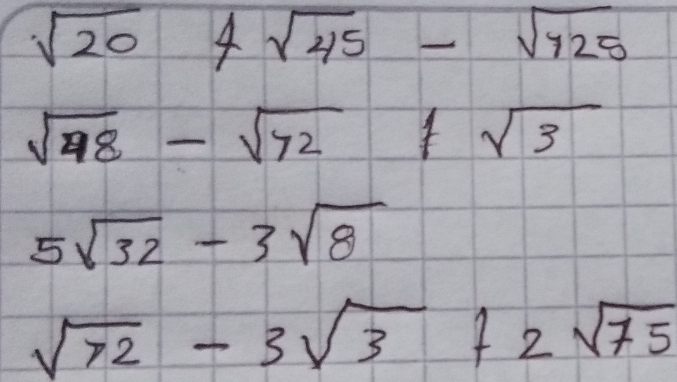 √20 + √45 - √125
√48 - √12 + √3
5√32 - 3√8
√12 - 3√3 + 2√75